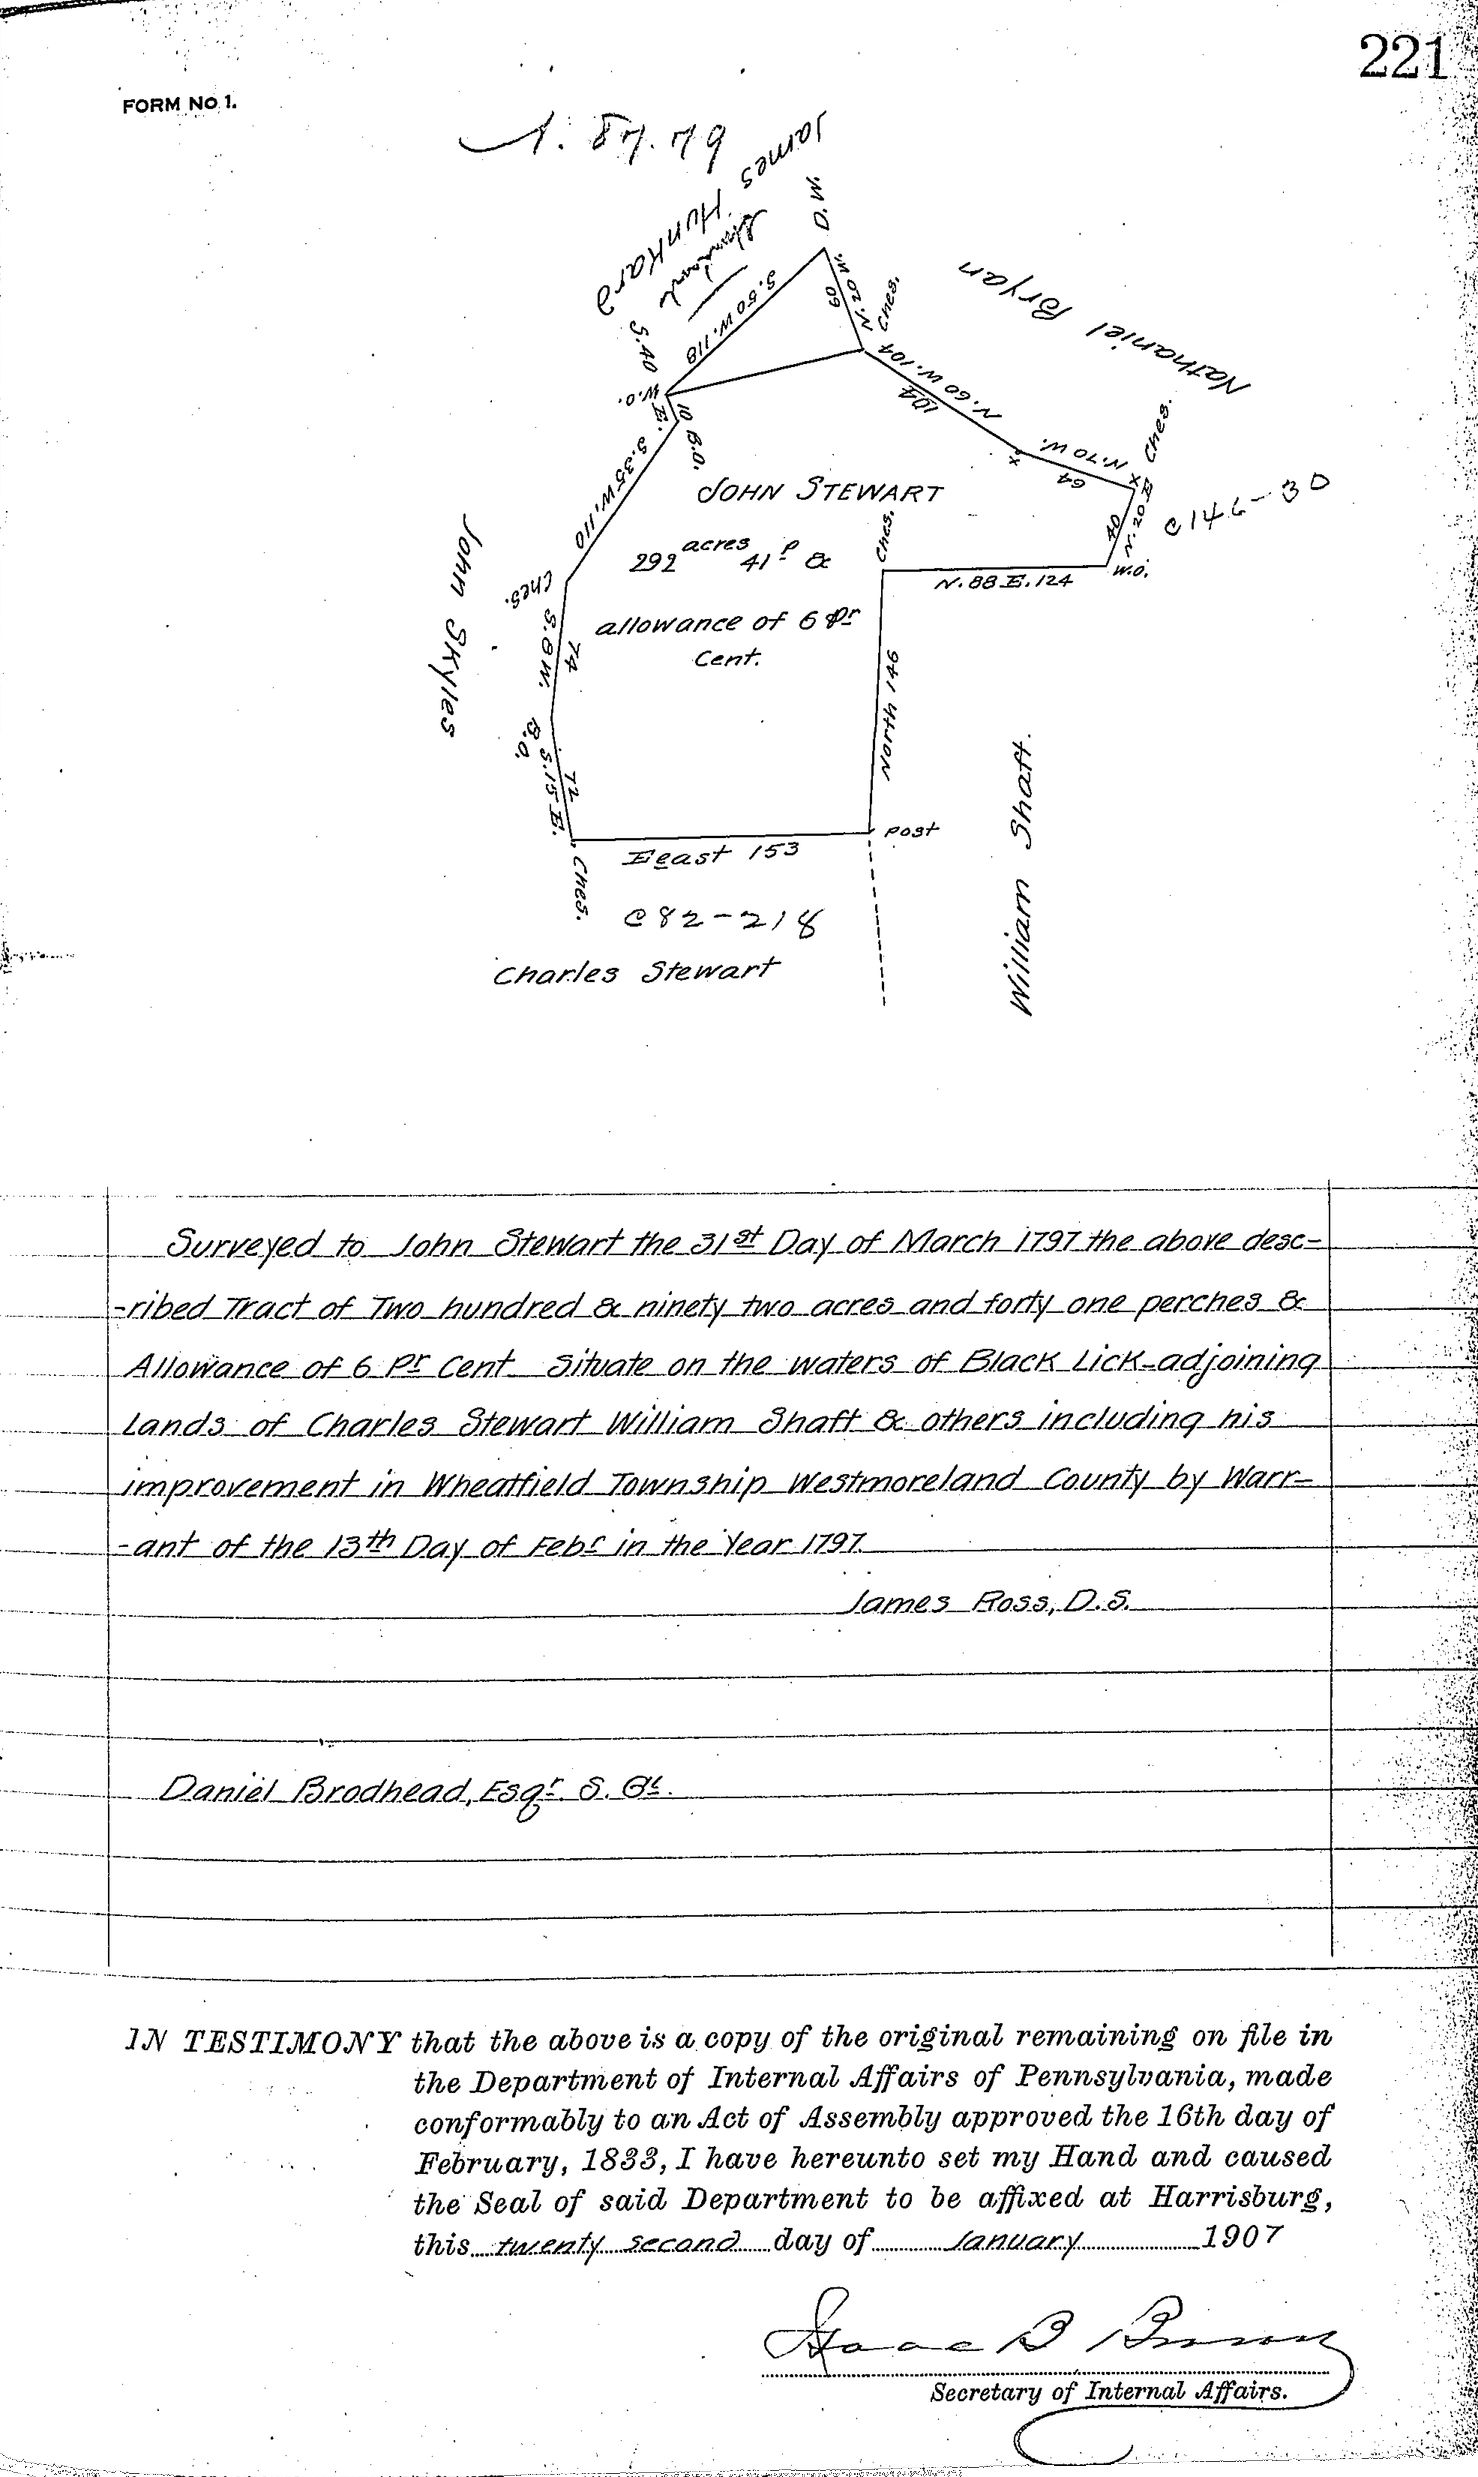 221
FORM No 1.
A. 87. 79
James
Hunkard
W.O.
S. 50 W. 118
N. 20 W.
60
Ches.
Nathaniel Bryan
S. 40
E.
10
W.O.
B.O.
N. 60 W. 104
104
N. 70 W.
64
x
x
Ches.
N. 20 E
40
W.O.
C146-30
S. 35 W. 110
JOHN STEWART
292 acres 41 P &
allowance of 6 Pr
Cent.
Ches.
N. 88 E. 124
John Skyles
Ches.
S. 8 W.
74
B.O.
S. 15 E.
72
North 146
Post
Eeast 153
Ches.
C82-218
Charles Stewart
William Shaft.
Surveyed to John Stewart the 31st Day of March 1797 the above desc-
-ribed Tract of Two hundred & ninety two acres and forty one perches &
Allowance of 6 Pr Cent. Situate on the waters of Black Lick adjoining
Lands of Charles Stewart William Shaft & others including his
improvement in Wheatfield Township Westmoreland County by Warr-
-ant of the 13th Day of Febr in the Year 1797.
James Ross, D.S.
Daniel Brodhead, Esqr. S. Gl.
IN TESTIMONY that the above is a copy of the original remaining on file in
the Department of Internal Affairs of Pennsylvania, made
conformably to an Act of Assembly approved the 16th day of
February, 1833, I have hereunto set my Hand and caused
the Seal of said Department to be affixed at Harrisburg,
this twenty second day of January 1907
Isaac B Brown
Secretary of Internal Affairs.